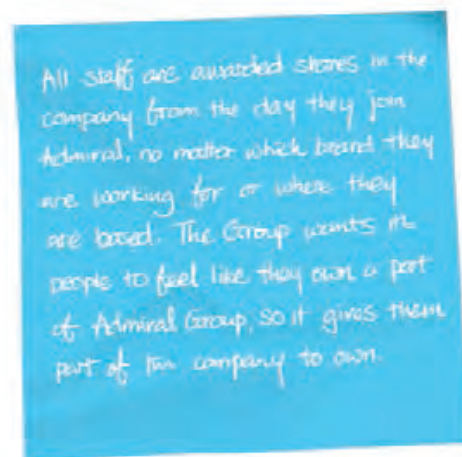 All staff are awarded shares in the
company from the day they join
Admiral, no matter which brand they
are working for or where they
are based. The Group wants its
people to feel like they own a part
of Admiral Group, so it gives them
part of the company to own.